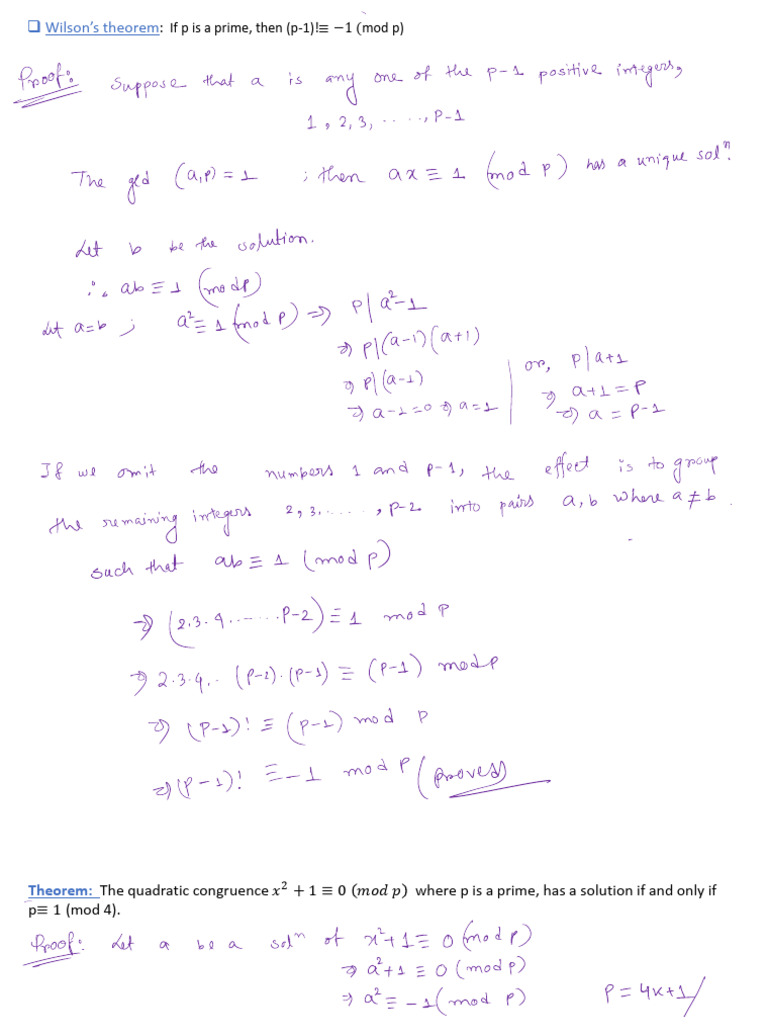 ❑ Wilson's theorem: If p is a prime, then (p-1)!≡ −1 (mod p)
Proof: Suppose that a is any one of the p-1 positive integers,
1, 2, 3, ....., p-1
The gcd (a,p) = 1 ; then ax ≡ 1 (mod p) has a unique solⁿ.
Let b be the solution.
∴ ab ≡ 1 (mod p)
Let a=b ; a² ≡ 1 (mod p) ⇒ p | a²-1
⇒ p|(a-1)(a+1)
⇒ p|(a-1) or, p | a+1
⇒ a-1=0 ⇒ a=1 ⇒ a+1 = p
⇒ a = p-1
If we omit the numbers 1 and p-1, the effect is to group
the remaining integers 2, 3, ....., p-2 into pairs a, b where a ≠ b.
such that ab ≡ 1 (mod p)
⇒ (2.3.4.......p-2) ≡ 1 mod p
⇒ 2.3.4... (p-2).(p-1) ≡ (p-1) mod p
⇒ (p-1)! ≡ (p-1) mod p
⇒ (p-1)! ≡ -1 mod p (proves)
Theorem: The quadratic congruence x² + 1 ≡ 0 (mod p) where p is a prime, has a solution if and only if
p≡ 1 (mod 4).
Proof: Let a be a solⁿ of x²+1 ≡ 0 (mod p)
⇒ a²+1 ≡ 0 (mod p)
⇒ a² ≡ -1 (mod p) p = 4k+1/